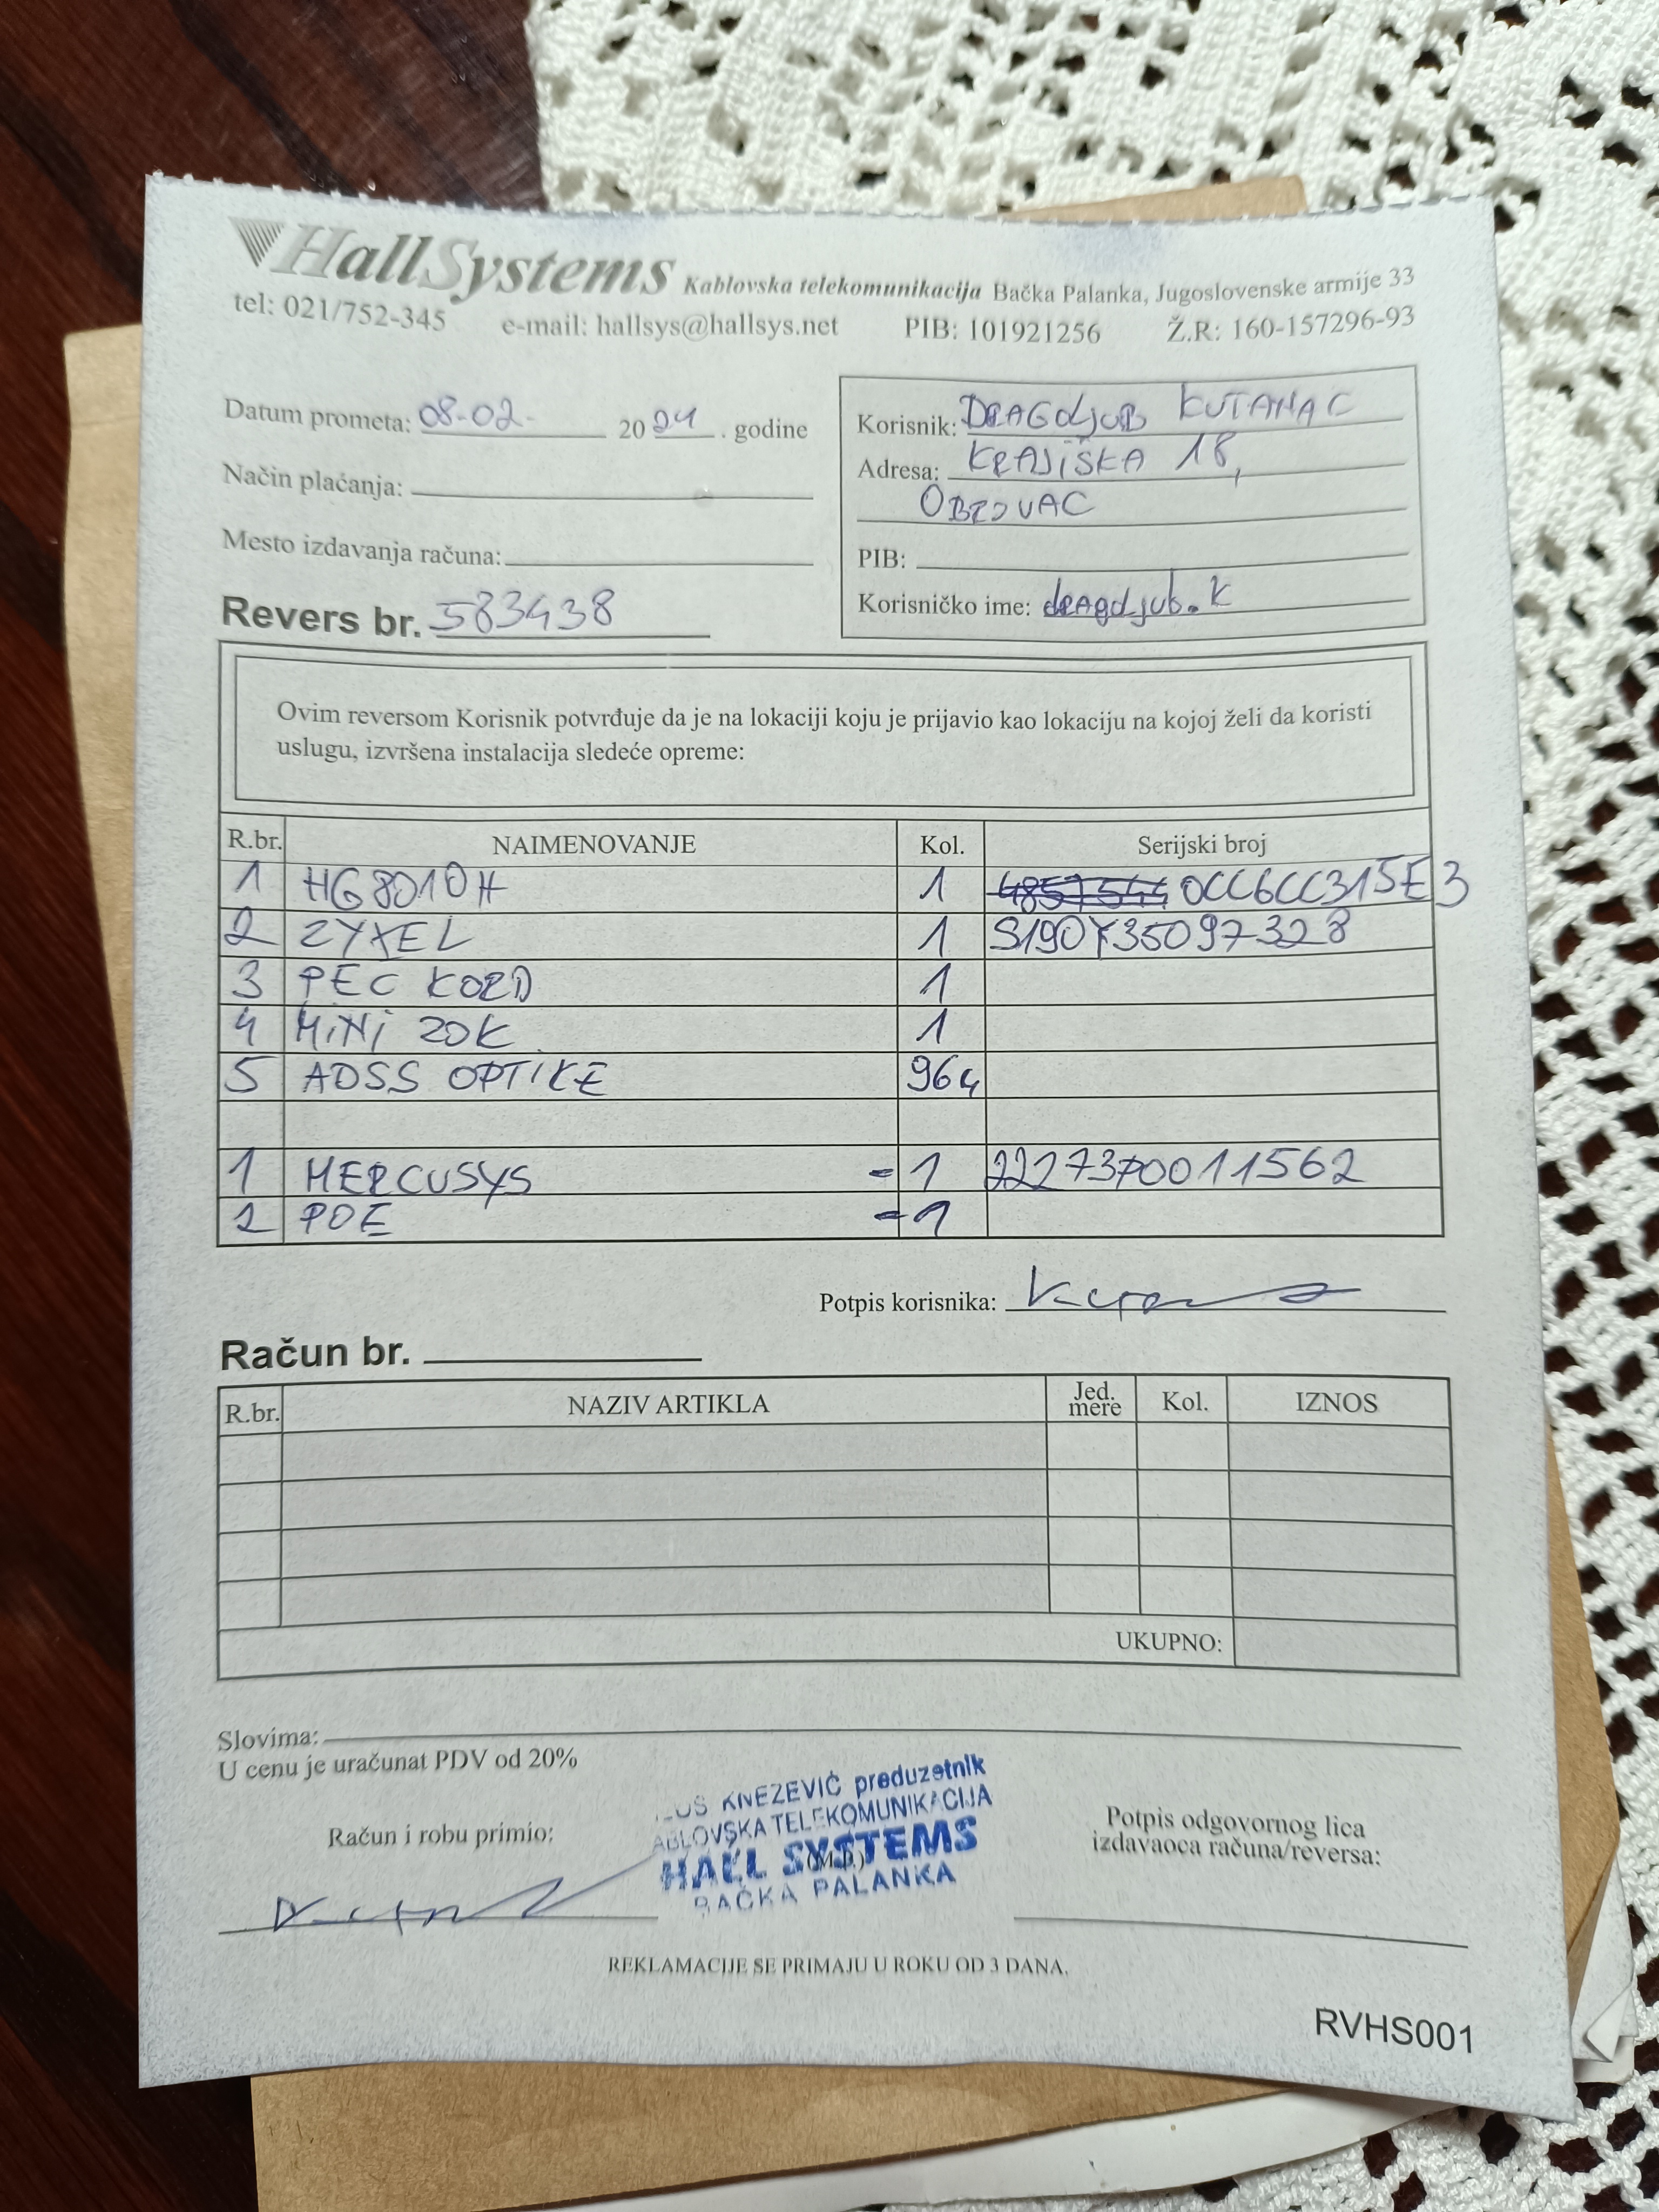 HallSystems Kablovska telekomunikacija Bačka Palanka, Jugoslovenske armije 33
tel: 021/752-345 e-mail: hallsys@hallsys.net PIB: 101921256 Ž.R: 160-157296-93
Datum prometa: 08-02- 2024. godine
Način plaćanja:
Mesto izdavanja računa:
Revers br. 583438
Korisnik: DRAGOLJUB KUTANAC
Adresa: KRAJIŠKA 18,
OBROVAC
PIB:
Korisničko ime: dragoljub.k
Ovim reversom Korisnik potvrđuje da je na lokaciji koju je prijavio kao lokaciju na kojoj želi da koristi
uslugu, izvršena instalacija sledeće opreme:
R.br. NAIMENOVANJE Kol. Serijski broj
1 HG8010H 1 48575444 0CC6CC315E3
2 ZYXEL 1 S190Y35097328
3 PEC KORD 1
4 MiNi ZOK 1
5 ADSS OPTIKE 964
1 MERCUSYS -1 2217370011562
2 POE -1
Potpis korisnika:
Račun br.
R.br. NAZIV ARTIKLA Jed. mere Kol. IZNOS
UKUPNO:
Slovima:
U cenu je uračunat PDV od 20%
Račun i robu primio:
KNEZEVIĆ preduzetnik
ABLOVSKA TELEKOMUNIKACIJA
HALL SYSTEMS
(M.P.)
BAČKA PALANKA
Potpis odgovornog lica
izdavaoca računa/reversa:
REKLAMACIJE SE PRIMAJU U ROKU OD 3 DANA.
RVHS001